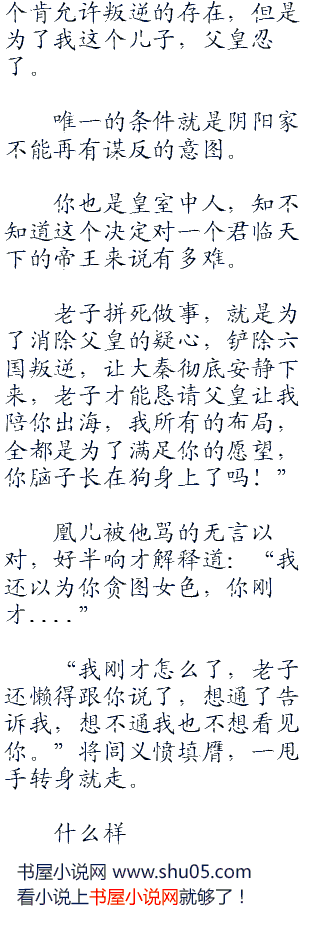 个肯允许叛逆的存在，但是
为了我这个儿子，父皇忍
了。
唯一的条件就是阴阳家
不能再有谋反的意图。
你也是皇室中人，知不
知道这个决定对一个君临天
下的帝王来说有多难。
老子拼死做事，就是为
了消除父皇的疑心，铲除六
国叛逆，让大秦彻底安静下
来，老子才能恳请父皇让我
陪你出海，我所有的布局，
全都是为了满足你的愿望，
你脑子长在狗身上了吗！”
凰儿被他骂的无言以
对，好半响才解释道：“我
还以为你贪图女色，你刚
才....”
“我刚才怎么了，老子
还懒得跟你说了，想通了告
诉我，想不通我也不想看见
你。”将闾义愤填膺，一甩
手转身就走。
什么样
书屋小说网 www.shu05.com
看小说上书屋小说网就够了！